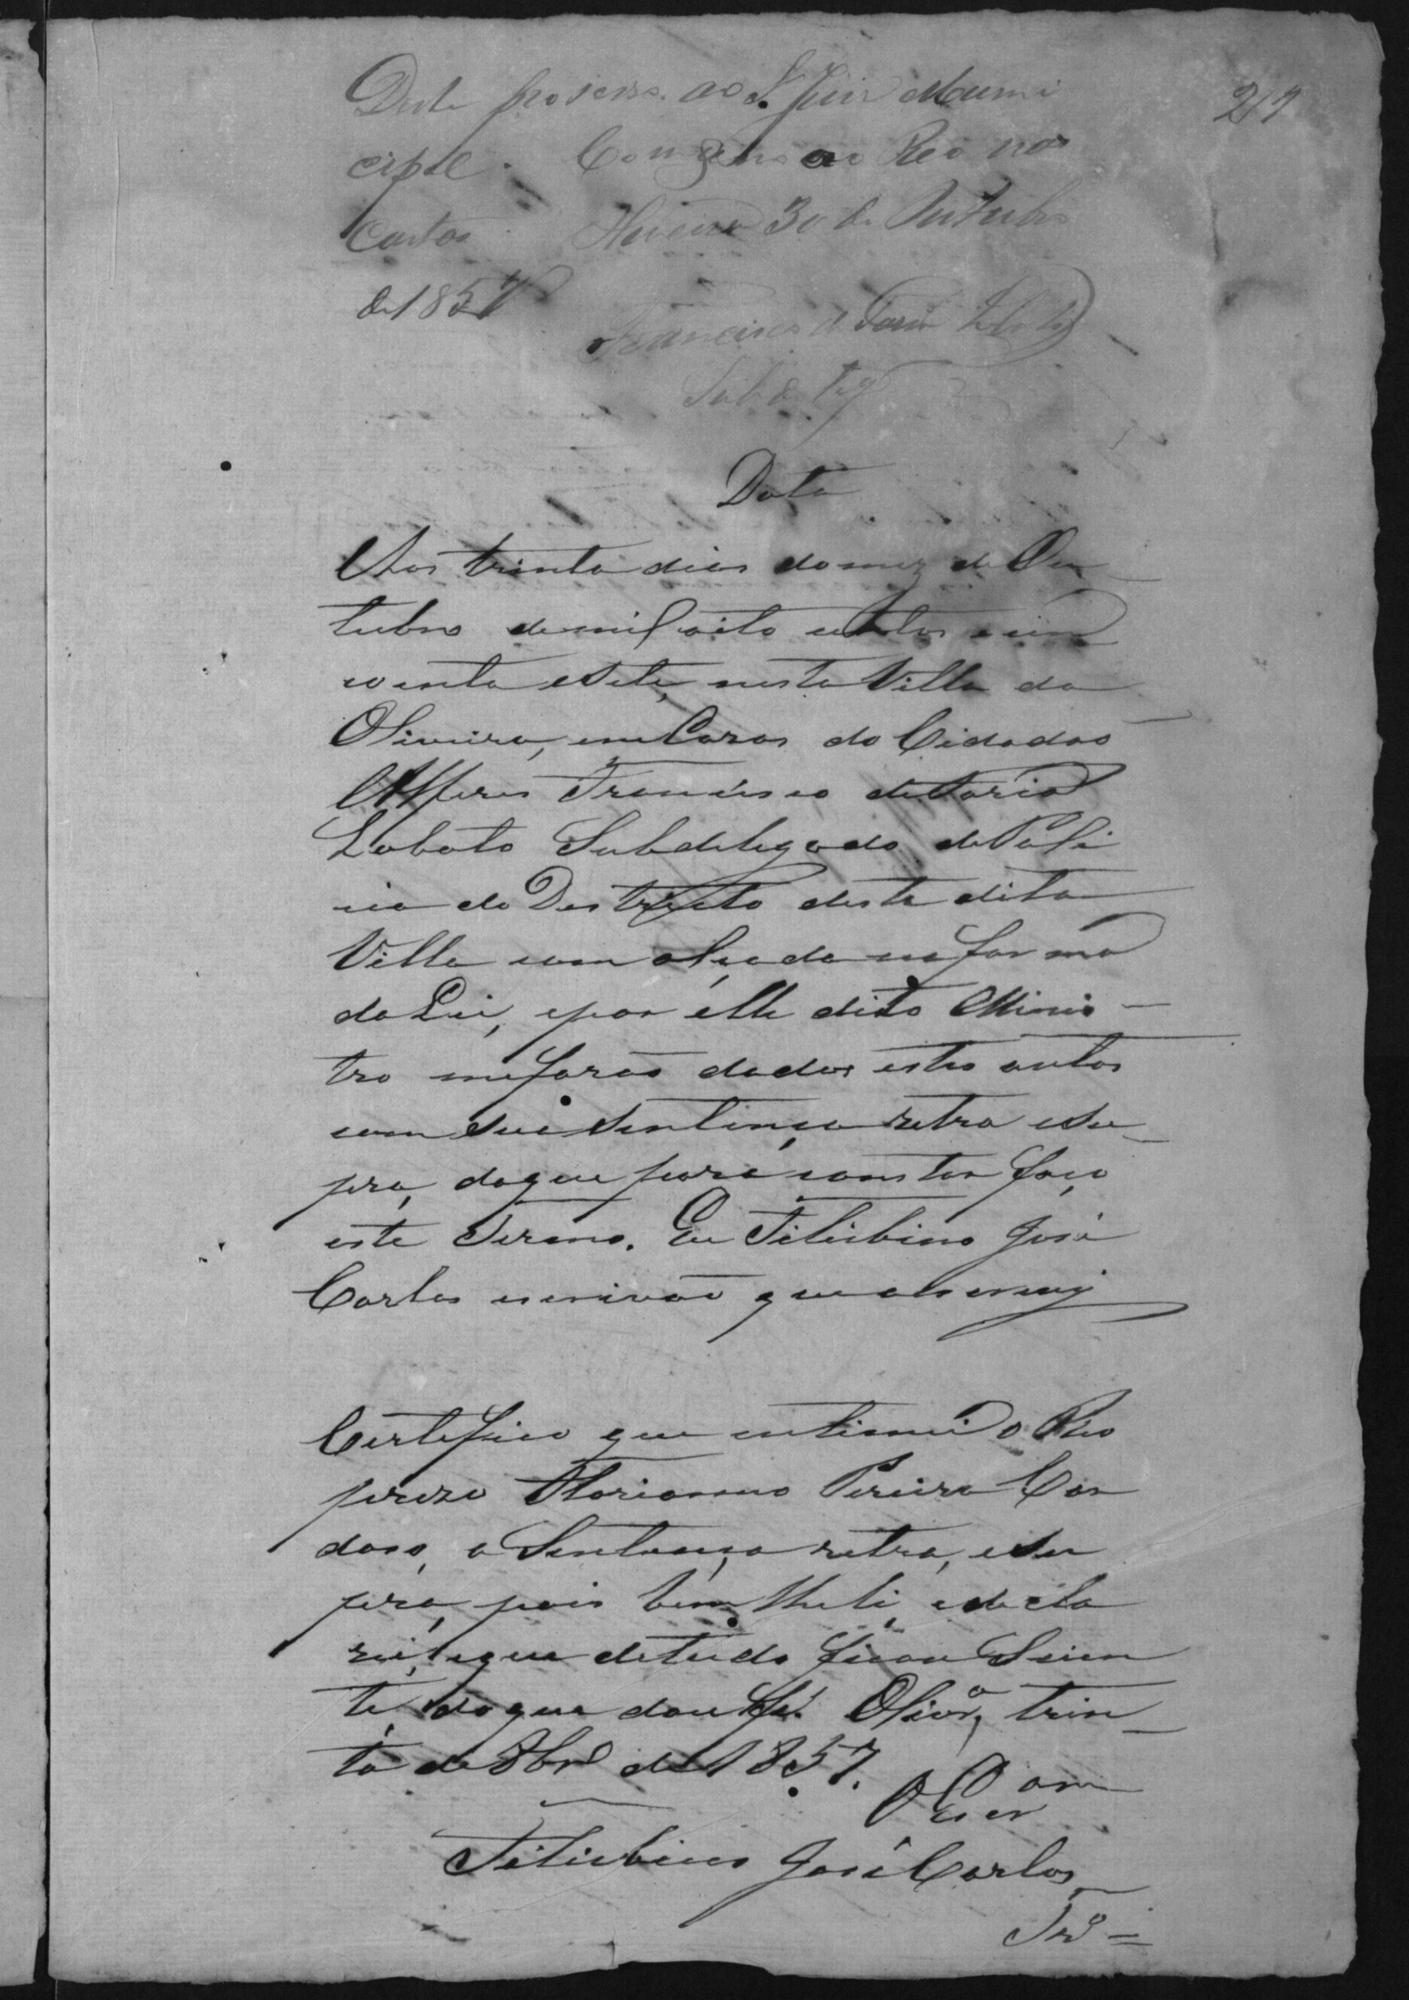 27
Deste processo ao S. Juiz Muni
cipal. Condeno ao Reo nas
Custas. Oliveira 30 de Outubro
de 1857
Francisco de Faria Lobato
Subdeleg
Data
Aos trinta dias do mez de Ou
tubro de mil oito centos e cin
coenta e sete, nesta Villa da
Oliveira, em Cazas do Cidadao
Alferes Francisco de Faria
Lobato Subdelegado de Poli
cia do Destricto desta dita
Villa com alçada na forma
da Lei, e por elle dito Minis
tro me forão dados estes autos
com sua Sentença retro e su
pra, do que para constar faço
este Termo. Eu Teliubino José
Carlos escrivão que o escrevy
Certefico que entimei o Reo
prezo Floriano Pereira Car
dozo, a Sentença retro, e su
pra, pois bem lhe li, e decla
rei, e que de tudo ficou Scien
te, do que dou fé. Olivrª, trin
ta de 8brº de 1857.
O Escr
Teliubino José Carlos